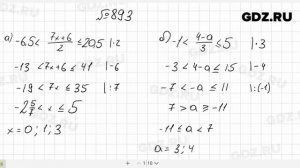 GDZ.RU
№893
а) -6,5 < (7x+6)/2 ≤ 20,5 |·2
-13 < 7x+6 ≤ 41 |-6
-19 < 7x ≤ 35 |:7
-2 5/7 < x ≤ 5
x = 0; 1; 3
б) -1 < (4-a)/3 ≤ 5 |·3
-3 < 4-a ≤ 15 |-4
-7 < -a ≤ 11 |:(-1)
7 > a ≥ -11
-11 ≤ a < 7
a = 3; 4
GDZ.RU